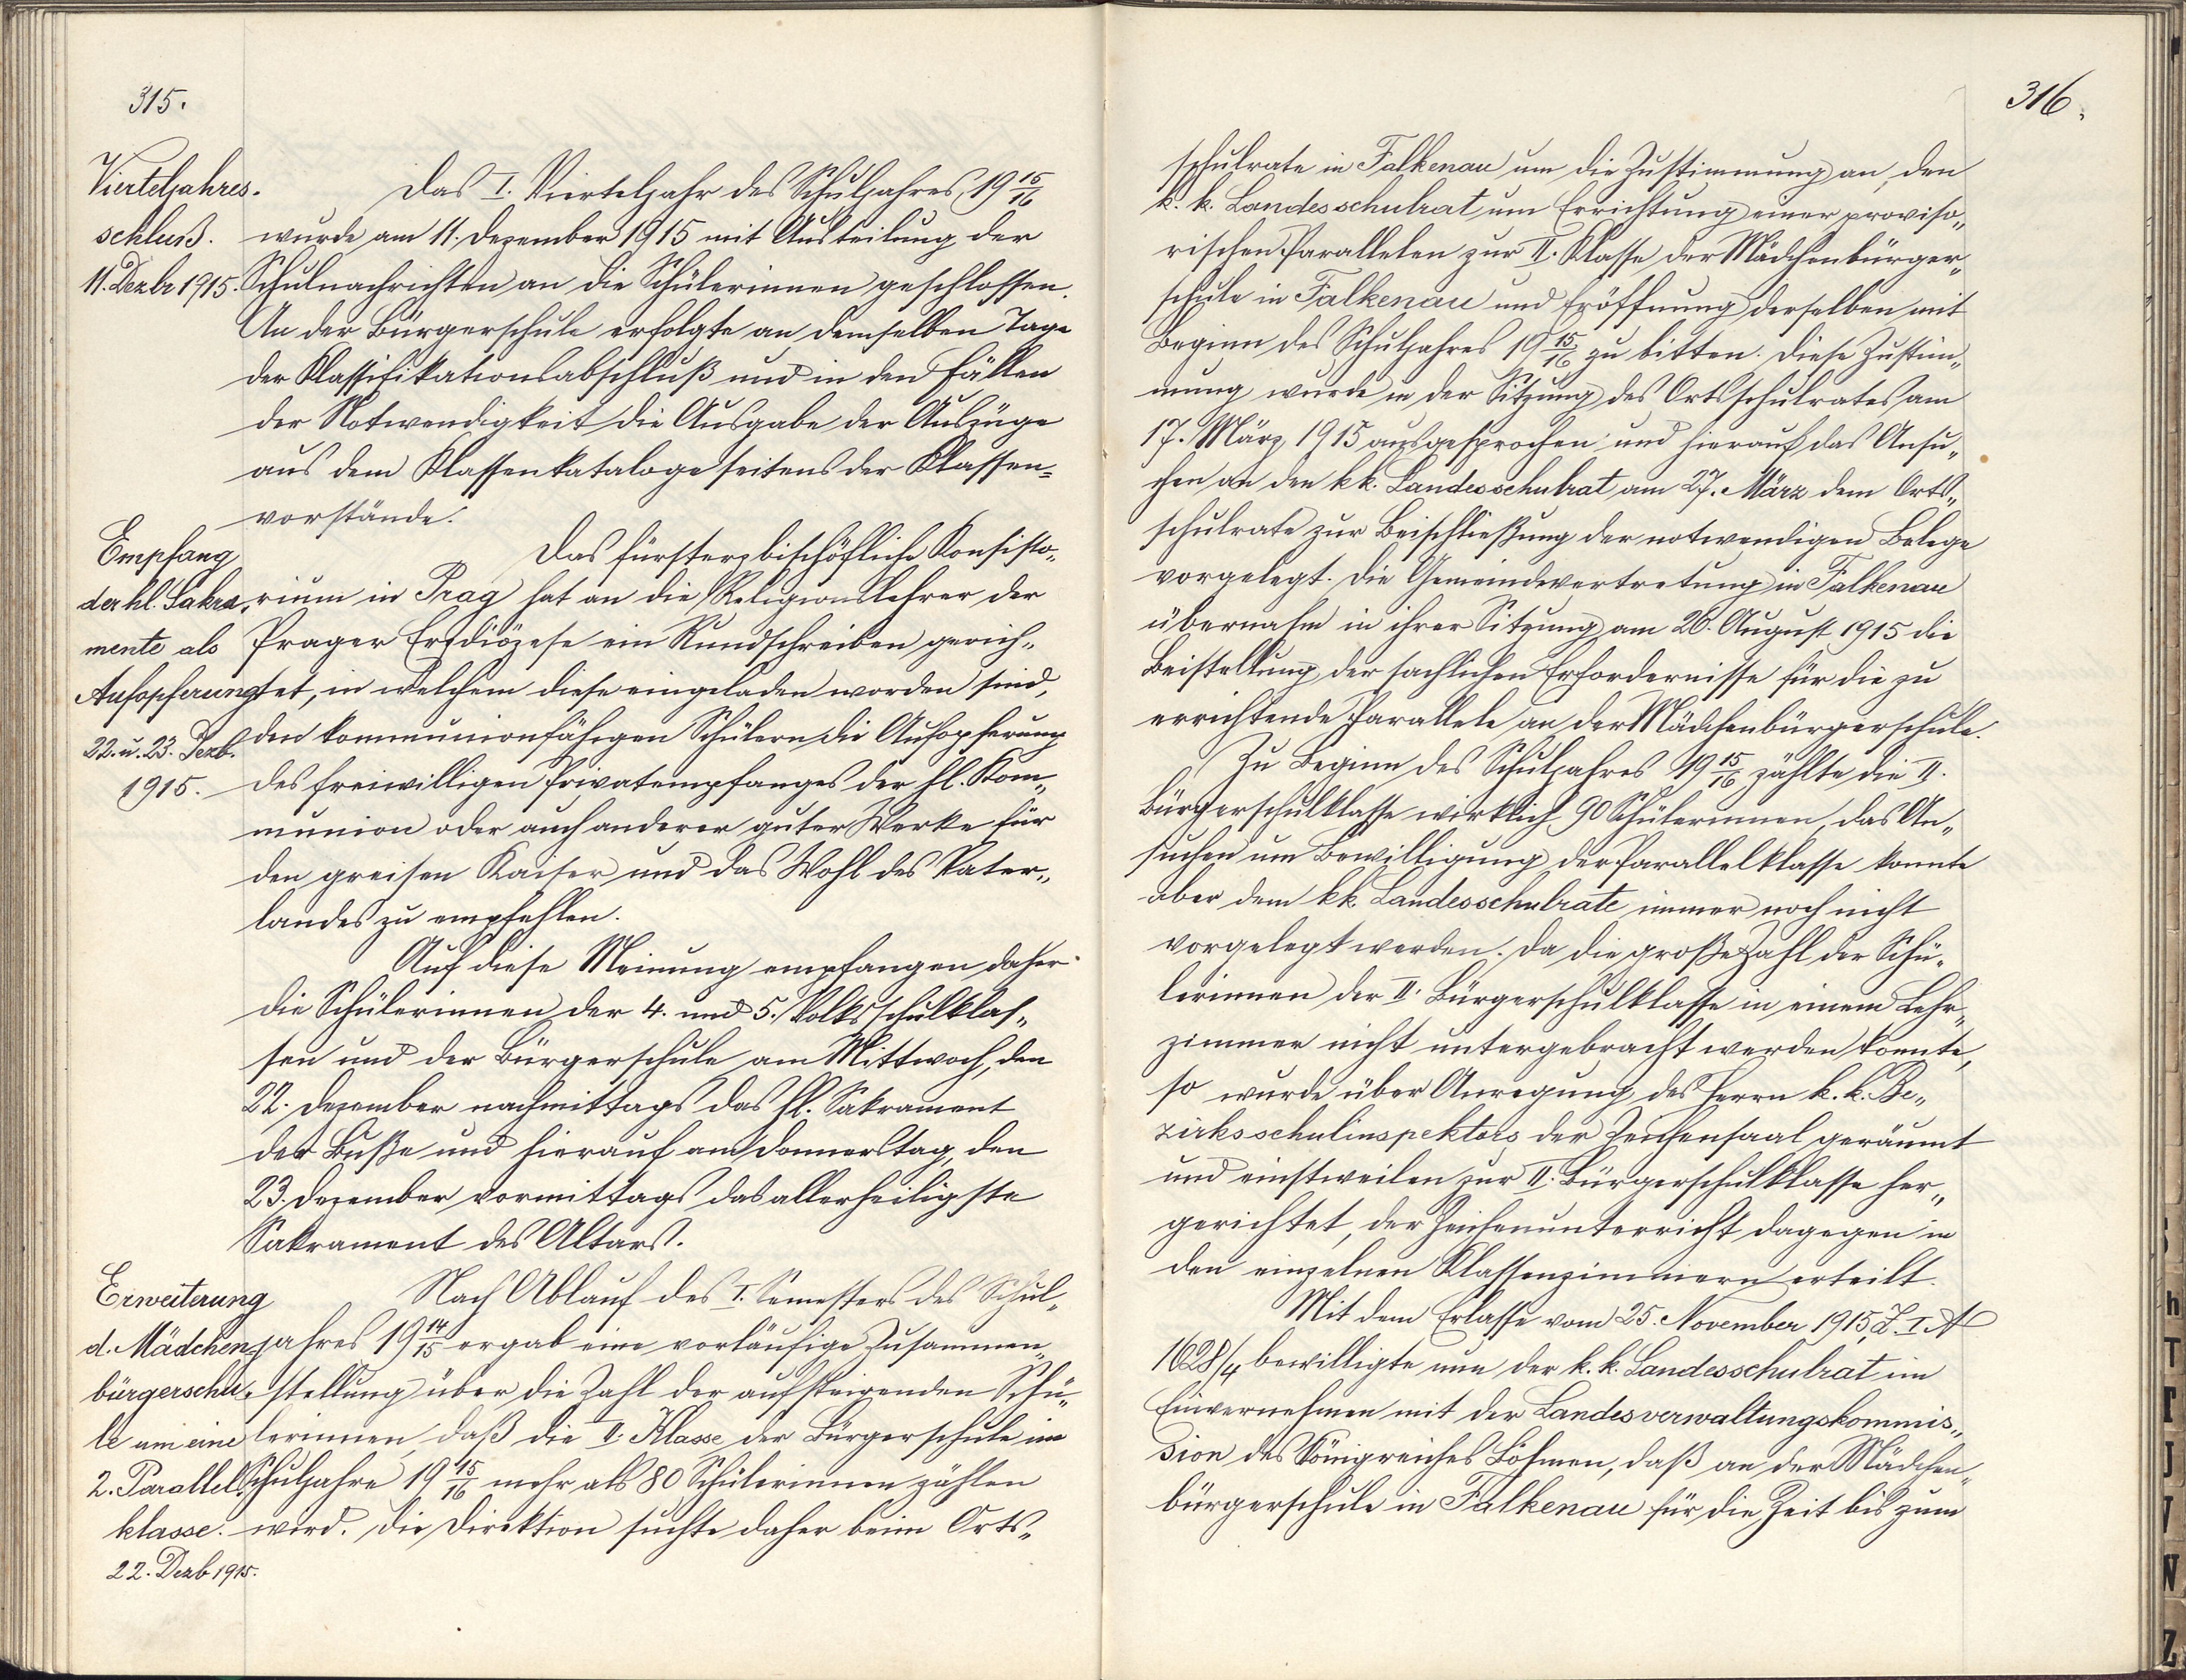 315.
Vierteljahres-
schluß.
11. Dezbr 1915.
Das I. Vierteljahr des Schuljahres 19 15/16
wurde am 11. Dezember 1915 mit Austeilung der
Schulnachrichten an die Schülerinnen geschlossen.
An der Bürgerschule erfolgte an demselben Tage
der Klassifikationsabschluß und in den Fällen
der Notwendigkeit die Ausgabe der Auszüge
aus dem Klassenkataloge seitens der Klassen-
vorstände.
Empfang
der hl. Sakra-
mente als
Aufopferung
22. u. 23. Dezb.
1915.
Das fürsterzbischöfliche Konsisto-
rium in Prag hat an die Religionslehrer der
Prager Erzdiözese ein Rundschreiben gerich-
tet, in welchem diese eingeladen worden sind,
den kommunionfähigen Schülern die Aufopferung
des freiwilligen Privatempfanges der hl. Kom-
munion oder auch anderer guter Werke für
den greisen Kaiser und das Wohl des Vater-
landes zu empfehlen.
Auf diese Meinung empfangen daher
die Schülerinnen der 4. und 5. Volksschulklas-
sen und der Bürgerschule am Mittwoch, den
22. Dezember nachmittags das hl. Sakrament
der Buße und hierauf am Donnerstag, den
23. Dezember vormittags das allerheiligste
Sakrament des Altars.
Erweiterung
d. Mädchen-
bürgerschu-
le um eine
2. Parallel-
klasse.
22. Dezb 1915.
Nach Ablauf des I. Semesters des Schul-
jahres 19 14/15 ergab eine vorläufige Zusammen-
stellung über die Zahl der aufsteigenden Schü-
lerinnen, daß die II. Klasse der Bürgerschule im
Schuljahre 19 15/16 mehr als 80 Schülerinnen zählen
wird. Die Direktion suchte daher beim Orts-
316.
schulrate in Falkenau um die Zustimmung an, den
k. k. Landesschulrat um Errichtung einer proviso-
rischen Parallelen zur II. Klasse der Mädchenbürger-
schule in Falkenau und Eröffnung derselben mit
Beginn des Schuljahres 19 15/16 zu bitten. Diese Zustim-
mung wurde in der Sitzung des Ortsschulrates am
17. März 1915 ausgesprochen und hierauf das Ansu-
chen an den k.k. Landesschulrat am 27. März dem Orts-
schulrate zur Beischließung der notwendigen Belege
vorgelegt. Die Gemeindevertretung in Falkenau
übernahm in ihrer Sitzung am 26. August 1915 die
Beistellung der sachlichen Erfordernisse für die zu
errichtende Parallele an der Mädchenbürgerschule.
Zu Beginn des Schuljahres 19 15/16 zählte die II.
Bürgerschulklasse wirklich 90 Schülerinnen, das An-
suchen um Bewilligung der Parallelklasse konnte
aber dem k.k. Landesschulrate immer noch nicht
vorgelegt werden. Da die große Zahl der Schü-
lerinnen der II. Bürgerschulklasse in einem Lehr-
zimmer nicht untergebracht werden konnte,
so wurde über Anregung des Herrn k. k. Be-
zirksschulinspektors der Zeichensaal geräumt
und einstweilen zur II. Bürgerschulklasse her-
gerichtet, der Zeichenunterricht dagegen in
den einzelnen Klassenzimmern erteilt.
Mit dem Erlasse vom 25. November 1915, Z. I A
1628/4 bewilligte nun der k. k. Landesschulrat im
Einvernehmen mit der Landesverwaltungskommis-
sion des Königreiches Böhmen, daß an der Mädchen-
bürgerschule in Falkenau für die Zeit bis zum